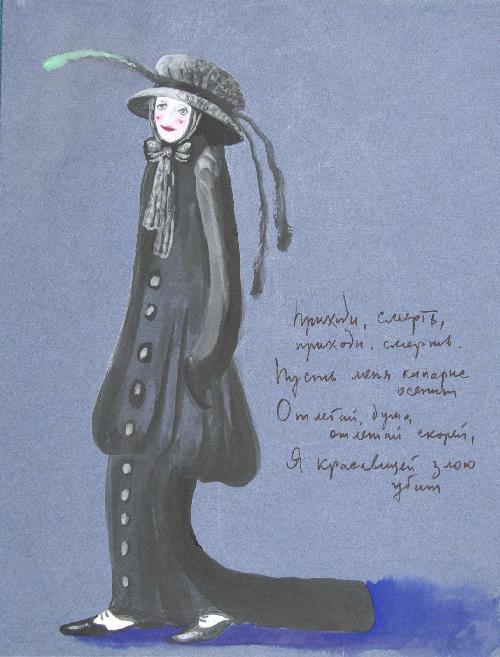 Приходи, смерть,
приходи. смерть.
Пусть меня кипарис
осенит
Отлетай, душа,
отлетай скорей,
Я красавицей злою
убит